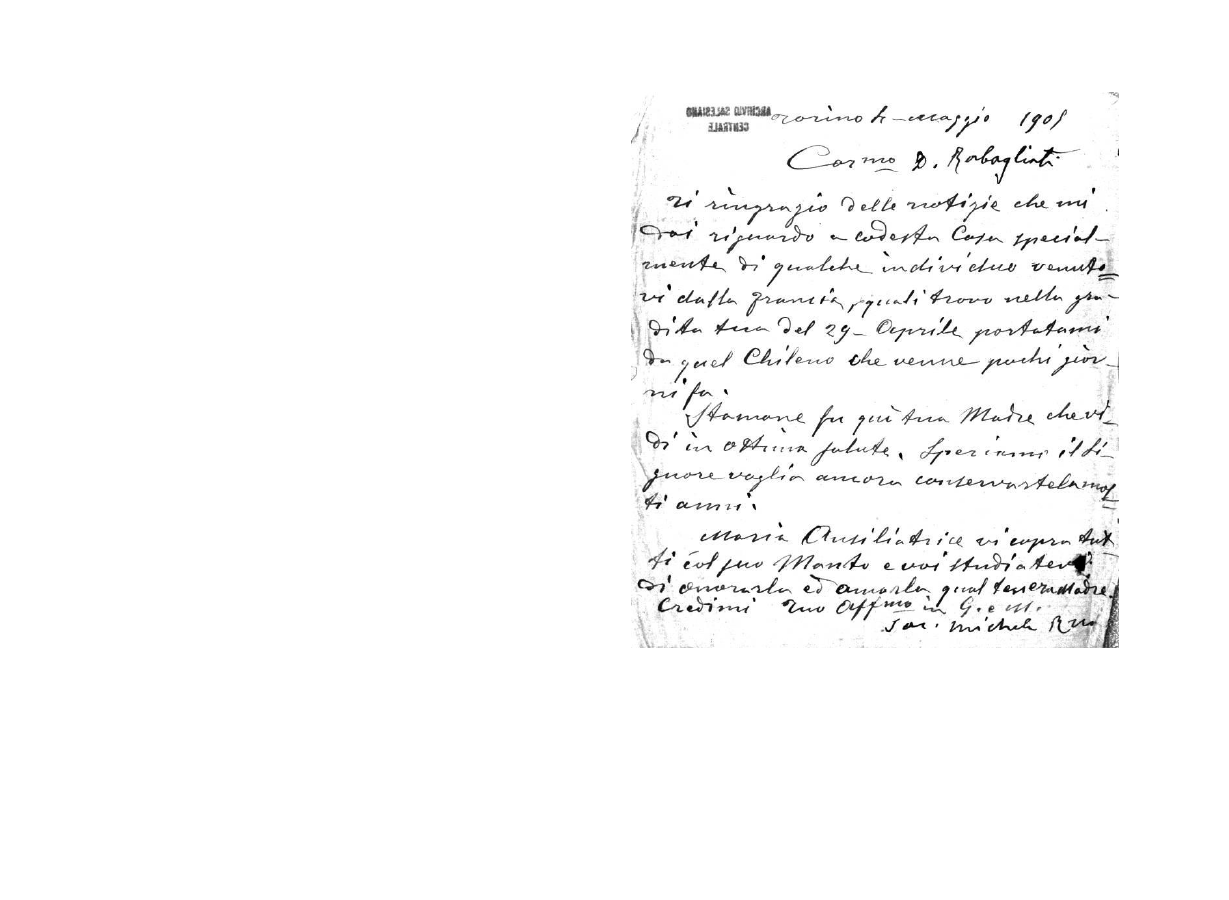 ARCHIVIO SALESIANO
CENTRALE
Torino 4 - Maggio 1905
Carmo D. Rabagliati
Ti ringrazio delle notizie che mi
dai riguardo a codesta Casa special-
mente di qualche individuo venuto
vi dalla Francia, quali trovo nella gra-
dita tua del 29 - Aprile portatami
da quel Chileno che venne pochi gior-
ni fa.
Stamane fu quì tua Madre che vi-
di in ottima salute. Speriamo il Si-
gnore voglia ancora conservartela mol
ti anni.
Maria Ausiliatrice vi copra tut
ti col suo Manto e voi studiatevi
di onorarla ed amarla qual tenera Madre.
Credimi Tuo Affmo in G. e M.
Sac. Michele Rua